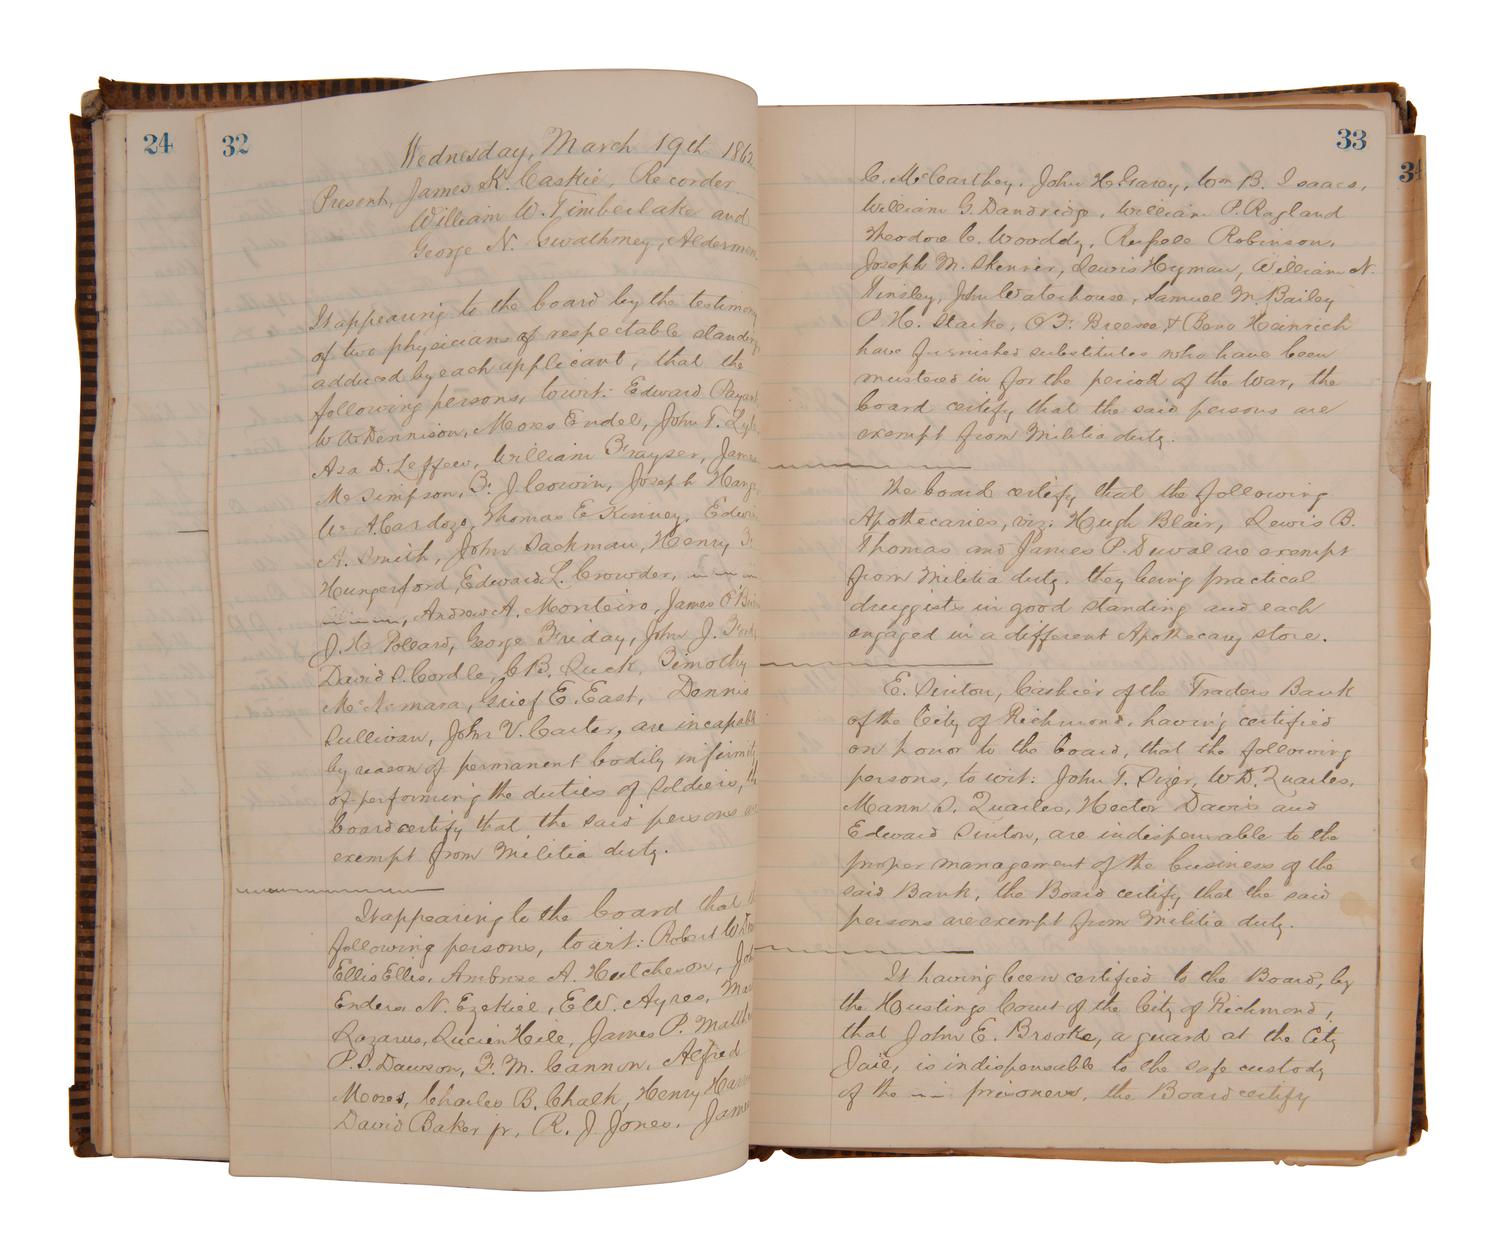 24
32
Wednesday, March 19th 1862
Present, James K. Caskie, Recorder
William W. Timberlake and
George N. Gwathmey, Aldermen
It appearing to the board by the testimony
of two physicians of respectable standing
adduced by each applicant, that the
following persons, to wit: Edward
W A Dennison, Moses Endel, John T.
Asa D. Leffew, William Frayser, James
M. Simpson, B. J. Corwin, Joseph
A Cardozo, Thomas E Kinney, Edwin
A. Smith, John Sackman, Henry
Hungerford, Edward L. Crowder,
Andrew A. Monteiro, James O'
J. H. Pollard, George Friday, John J.
David S. Cordle, C B. Luck, Timothy
McNamara, Grief E. East, Dennis
Sullivan, John V. Carter, are incapable
by reason of permanent bodily infirmity
of performing the duties of soldiers, the
board certify that the said persons are
exempt from Militia duty.
It appearing to the board that the
following persons, to wit: Robert W
Ellis Ellis, Ambrose A. Hutcheson, John
Enders, N. Ezekiel, E.W. Ayres,
Lazarus, Lucien Hile, James P.
P. S. Dawson, F. M. Cannon, Alfred
Moses, Charles B. Chalk, Henry
David Baker jr, R. J. Jones, James
33
34
C. McCarthey, John H. Garey, Wm B. Isaacs,
William G. Dandridge, William P. Ragland
Theodore C. Wooddy, Russell Robinson,
Joseph M. Skenrer, Lewis Hyman, William N.
Tinsley, John Waterhouse, Samuel M. Bailey
P. H. Starke, O F. Breese & Bero Heinrich
have furnished substitutes who have been
mustered in for the period of the War, the
board certify that the said persons are
exempt from Militia duty.
The board certify that the following
Apothecaries, viz: Hugh Blair, Lewis B.
Thomas and James P. Duval are exempt
from Militia duty. they being practical
druggists in good standing and each
engaged in a different Apothecary store.
E. Sinton, Cashier of the Traders Bank
of the City of Richmond, having certified
on honor to the board, that the following
persons, to wit: John T. Sizer, W. D. Quarles,
Mann S. Quarles, Hector Davis and
Edward Sinton, are indispensable to the
proper management of the business of the
said Bank, the Board certify that the said
persons are exempt from Militia duty.
It having been certified to the Board, by
the Hustings Court of the City of Richmond,
that John E. Brooke, a guard at the City
Jail, is indispensable to the safe custody
of the prisoners, the Board certify